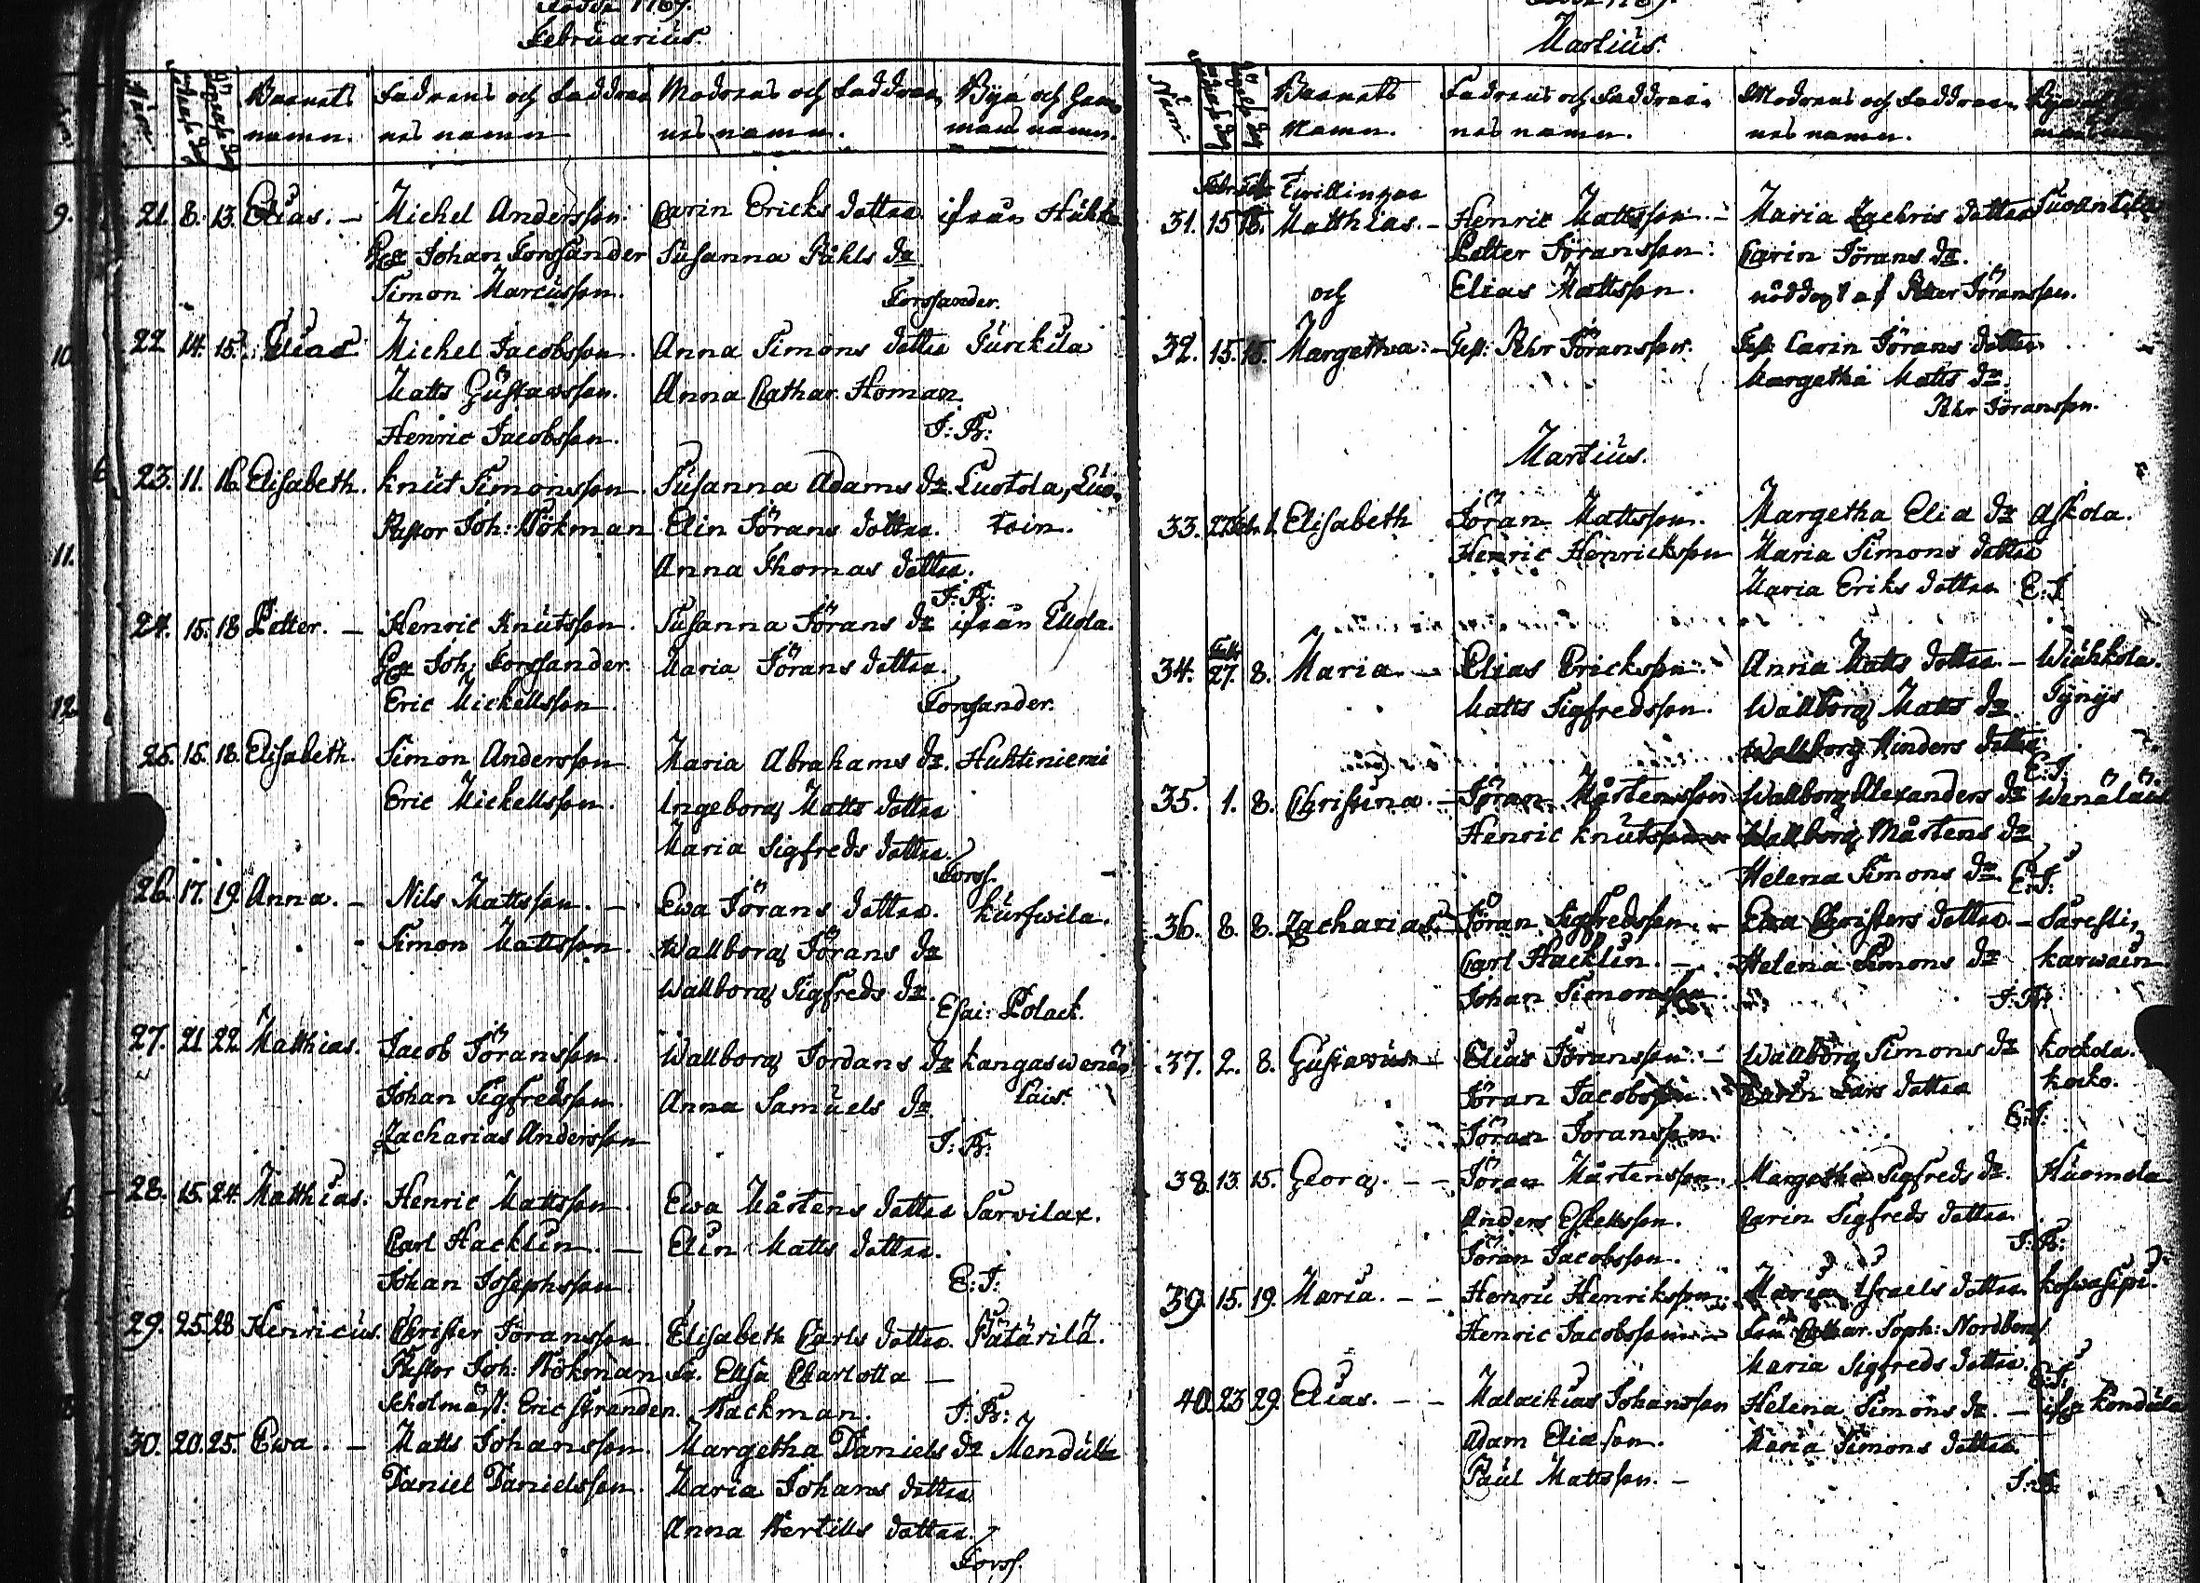 Februarius.
Barnets namn.
Fadrens och Faddrarnes namn
Modrens och Faddrarnes namn.
Bya och
namn.
21. 8. 13. Elias. — Michel Andersson. Carin Ericks dotter ifrån
Johan Forssander Susanna Påhls dr
Simon Marcusson.
Forssander.
22 14. 15. Elias Michel Jacobsson. Anna Simons dotter Turckila
Matts Gustavsson. Anna Cathar. Homan.
Henric Jacobsson. J: B:
23. 11. 16. Elisabeth. Knut Simonsson Susanna Adams dr. Suotola,
Pastor Joh: Bökman Elin Jörans dotter. toin.
Anna Thomas dotter.
J: B:
24. 15. 18 Petter. — Henric Knutsson. Susanna Jörans dr ifrån
Joh. Forssander. Maria Jörans dotter.
Eric Mickellsson Forssander.
25. 15. 18. Elisabeth. Simon Andersson Maria Abrahams dr. Huhtiniemi
Eric Mickellsson. Ingeborg Matts dotter
Maria Sigfreds dotter.
Forss.
26. 17. 19. Anna. — Nils Mattsson. — Ewa Jörans dotter.
Simon Mattsson. Wallborg Jörans dr
Wallborg Sigfreds dr.
Esai: Polack.
27. 21 22 Matthias. Jacob Jöransson. Wallborg Jordans dr Kangaswenä
Johan Sigfredsson. Anna Samuels dr. läis.
Zacharias Andersson J: B:
28. 15. 24. Matthias. Henric Mattsson. Ewa Mårtens dotter Sarvilax.
Carl Hacklin. — Elin Matts dotter.
Johan Josephsson E: J:
29. 25. 28 Henricus. Christer Jöransson. Elisabeth Carls dotter. Pätärilä.
Pastor Joh: Bökman Elsa Charlotta —
Scholmäst: Eric Stranden. Backman. J: B:
30. 20. 25. Ewa. — Matts Johansson. Margetha Daniels dr
Daniel Danielsson. Maria Johans dotter
Anna Bertills dotter.
Forss.
Martius.
Num
Barnets Namn.
Fadrens och Faddrarnes namn.
Modrens och Faddrarnes namn.
Twillingar
31. 15 18. Matthias. — Henric Mattsson. — Maria Zachris dotter
Petter Jöransson. Carin Jörans dr.
och Elias Mattsson. nöddopt af Petter Jöransson.
32. 15. 15. Margetha. — Pehr Jöransson. Carin Jörans dotter
Margetha Matts dr.
Pehr Jöransson.
Martius.
33. 27 Febr. 1. Elisabeth Jöran Mattsson. Margetha Elia dr Askola.
Henric Henricksson Maria Simons dotter
Maria Eriks dotter E: J
34. 27. 8. Maria. — Elias Ericksson. Anna Matts dotter. —
Matts Sigfredsson. Wallborg Matts dr.
Wallborg dotter
E: J:
35. 1. 8. Christina. — Jöran Mårtensson Wallborg Alexanders dr Wenäläis
Henric Knutsson Wallborg Mårtens dr
Helena Simons dr. E: J:
36. 8. 8. Zacharias. Jöran Sigfredsson. — Christers dotter. —
Carl Hacklin. — Helena Simons dr
Johan Simonsson J: B:
37. 2. 8. Gustavus — Elias Jöransson. — Wallborg Simons dr
Jöran Jacobsson. Lars dotter
Jöran Joransson. E: J:
38. 13. 15. Georg. — — Jöran Mårtensson. Margetha Sigfreds dr.
Anders Eskellsson. Carin Sigfreds dotter.
Jöran Jacobsson. J: B:
39. 15. 19. Maria. — — Henric Henriksson. Maria Israels dotter.
Henric Jacobsson Cathar. Soph: Nordberg
Maria Sigfreds dotter. E: J:
40. 23 29. Elias. — — Malachias Johansson Helena Simons dr. —
Adam Eliasson. Maria Simons dotter
Paul Mattsson. — J: B: